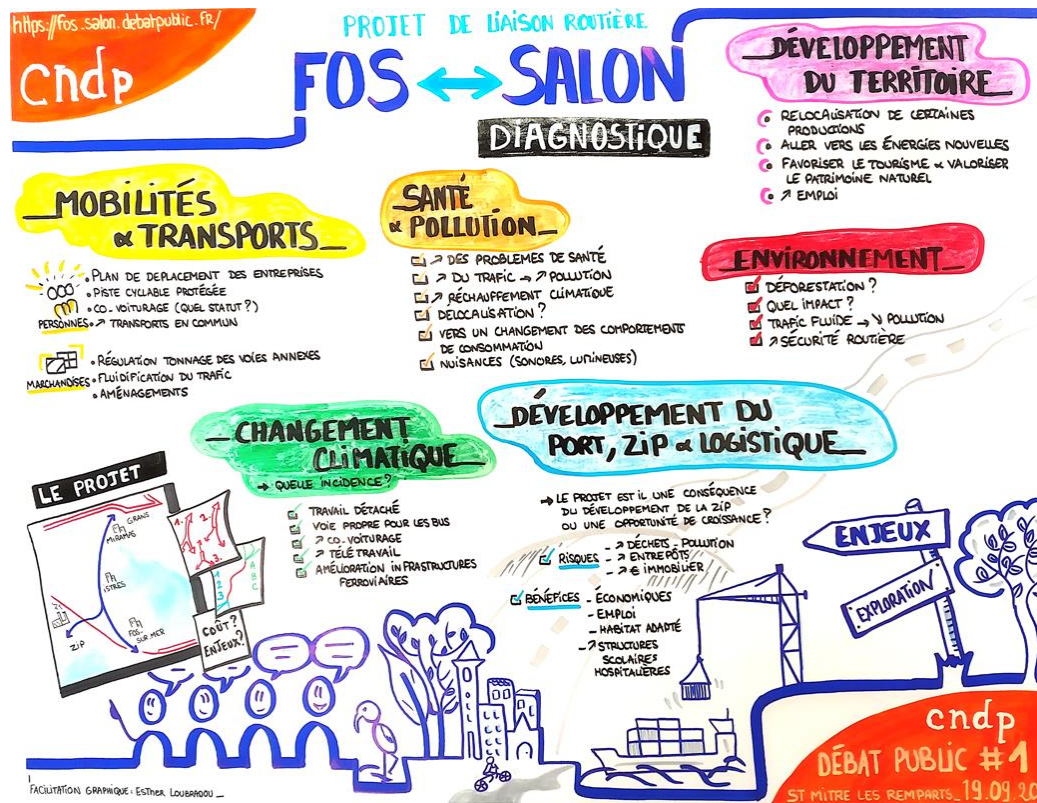 https://fos.salon.debatpublic.fr/
cndp
PROJET DE LIAISON ROUTIÈRE
FOS ↔ SALON
DIAGNOSTIQUE
DÉVELOPPEMENT
DU TERRITOIRE
RELOCALISATION DE CERTAINES
PRODUCTIONS
ALLER VERS LES ÉNERGIES NOUVELLES
FAVORISER LE TOURISME & VALORISER
LE PATRIMOINE NATUREL
↗ EMPLOI
MOBILITÉS
& TRANSPORTS
PERSONNES
• PLAN DE DEPLACEMENT DES ENTREPRISES
• PISTE CYCLABLE PROTÉGÉE
• CO-VOITURAGE (QUEL STATUT?)
• ↗ TRANSPORTS EN COMMUN
MARCHANDISES
• RÉGULATION TONNAGE DES VOIES ANNEXES
• FLUIDIFICATION DU TRAFIC
• AMÉNAGEMENTS
SANTÉ
& POLLUTION
↗ DES PROBLEMES DE SANTÉ
↗ DU TRAFIC → ↗ POLLUTION
↗ RÉCHAUFFEMENT CLIMATIQUE
DÉLOCALISATION ?
VERS UN CHANGEMENT DES COMPORTEMENTS
DE CONSOMMATION
NUISANCES (SONORES, LUMINEUSES)
ENVIRONNEMENT
DÉFORESTATION ?
QUEL IMPACT ?
TRAFIC FLUIDE → ↘ POLLUTION
↗ SÉCURITÉ ROUTIÈRE
CHANGEMENT
CLIMATIQUE
→ QUELLE INCIDENCE ?
TRAVAIL DÉTACHÉ
VOIE PROPRE POUR LES BUS
↗ CO-VOITURAGE
↗ TÉLÉ TRAVAIL
AMÉLIORATION INFRASTRUCTURES
FERROVIAIRES
DÉVELOPPEMENT DU
PORT, ZIP & LOGISTIQUE
→ LE PROJET EST IL UNE CONSÉQUENCE
DU DÉVELOPPEMENT DE LA ZIP
OU UNE OPPORTUNITÉ DE CROISSANCE ?
RISQUES - ↗ DÉCHETS - POLLUTION
- ↗ ENTREPÔTS
- ↗ € IMMOBILIER
BÉNÉFICES - ÉCONOMIQUES
- EMPLOI
- HABITAT ADAPTÉ
- ↗ STRUCTURES
SCOLAIRES
HOSPITALIÈRES
LE PROJET
GRANS
MIRAMAS
ISTRES
FOS-
SUR-MER
ZIP
1.
2.
3.
1
2
3
A
B
C
COÛT ?
ENJEUX ?
ENJEUX
EXPLORATION
cndp
DÉBAT PUBLIC #1
ST MITRE LES REMPARTS_19.09.20
FACILITATION GRAPHIQUE : ESTHER LOUBRADOU_